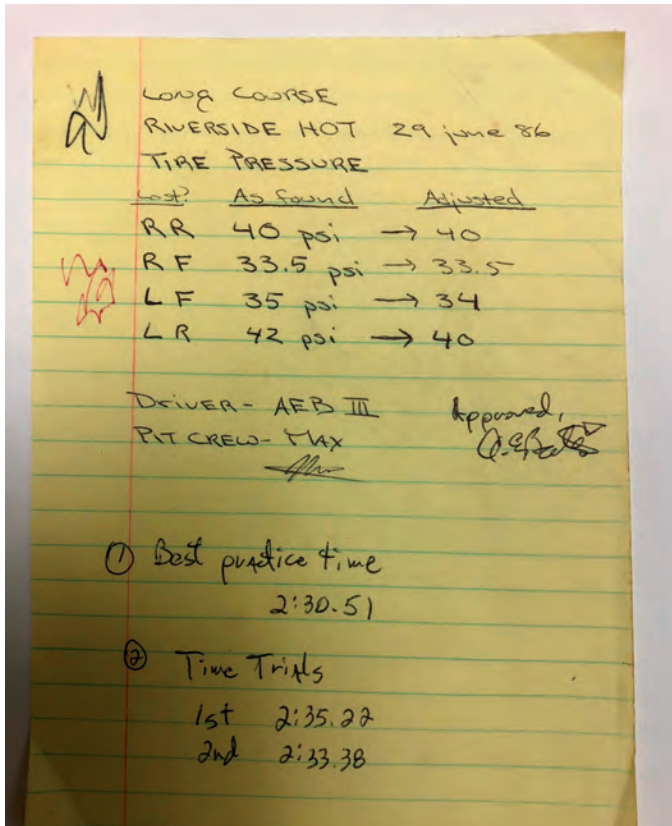 LONG COURSE
RIVERSIDE HOT 29 june 86
TIRE PRESSURE
As found Adjusted
RR 40 psi → 40
RF 33.5 psi → 33.5
LF 35 psi → 34
LR 42 psi → 40
DRIVER - AEB III
Approved,
PIT CREW - MAX
① Best practice time
2:30.51
② Time Trials
1st 2:35.22
2nd 2:33.38